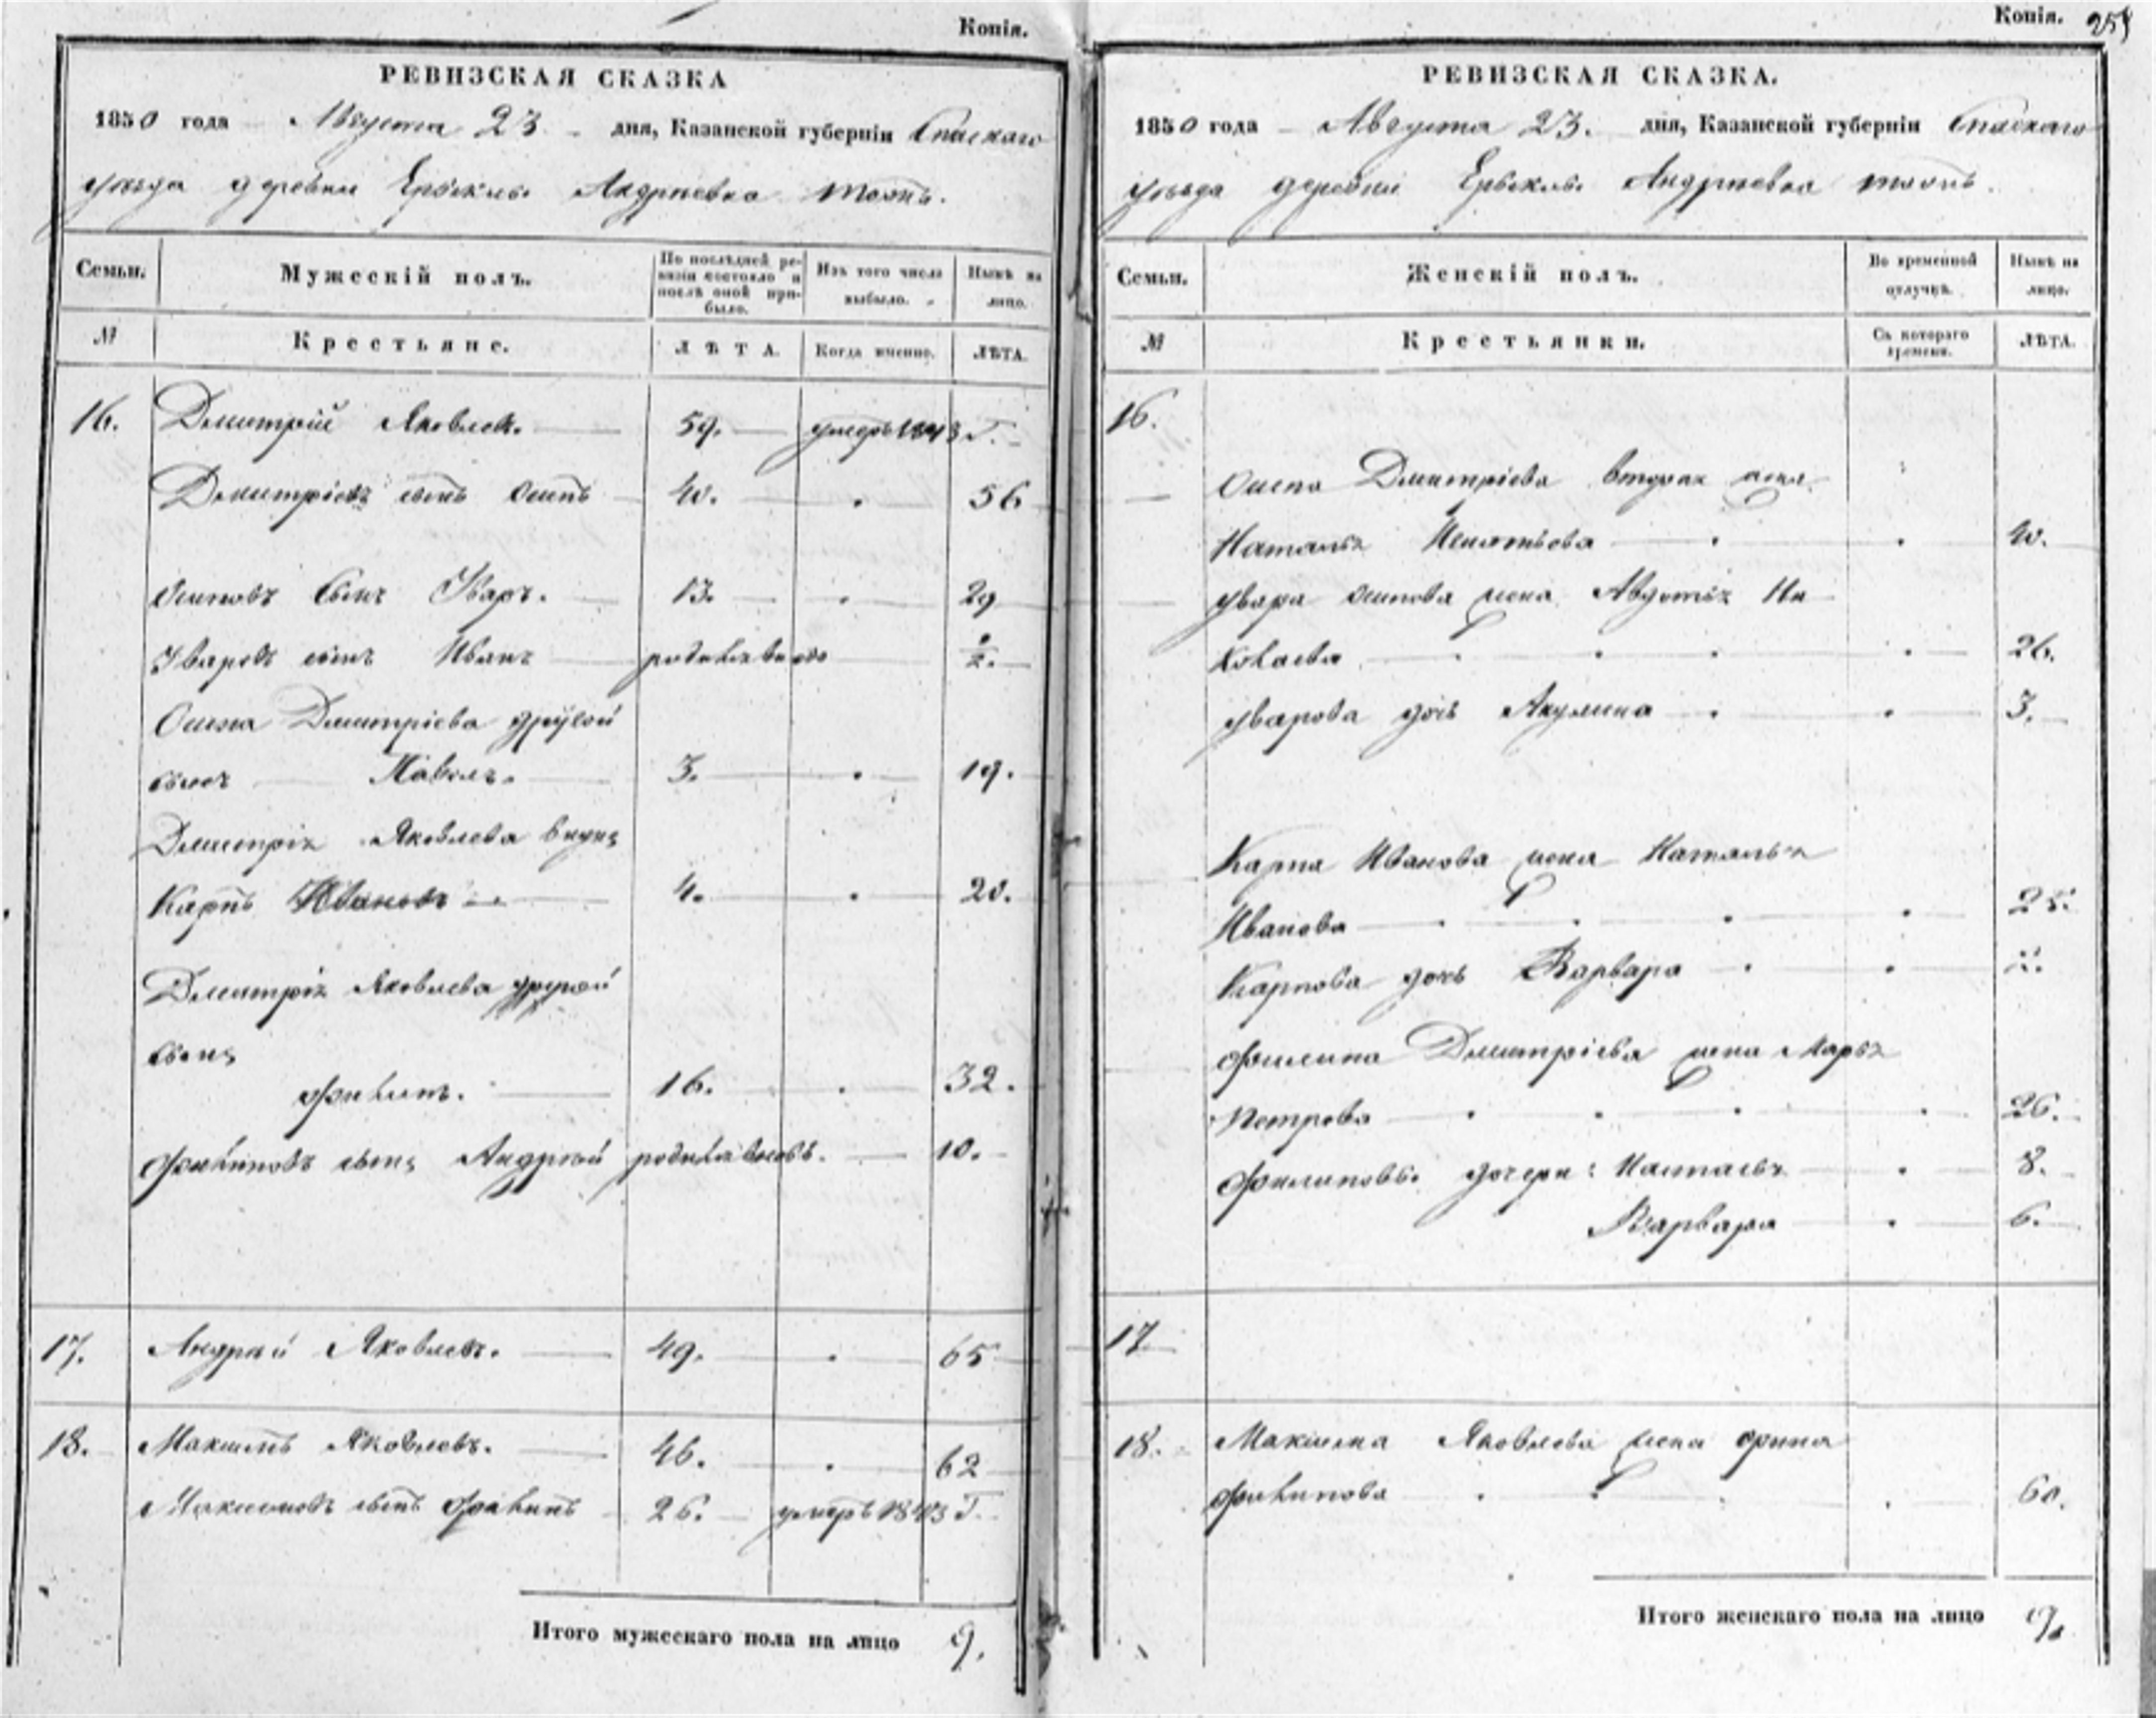 Копія.
РЕВИЗСКАЯ СКАЗКА
1850 года Августа 23 дня, Казанской губерніи Спаскаго
уѣзда деревни Андреевка тожъ.
Семьи.
Мужескій полъ.
По послѣдней ревизіи состояло и послѣ оной прибыло.
Изъ того числа выбыло.
Нынѣ на лицо.
№
Крестьяне.
ЛѢТА.
Когда именно.
ЛѢТА.
16. Дмитрій Яковлевъ. 59. умеръ 1843 г.
Дмитріевъ сынъ Осипъ 40. 56
Осиповъ сынъ Уваръ. 13. 29
Уваровъ сынъ Иванъ родился вновь
Осипа Дмитріева другой
сынъ Павелъ. 3. 19.
Дмитрія Яковлева внукъ
Карпъ Ивановъ 4. 20.
Дмитрія Яковлева другой
сынъ
Филипъ. 16. 32.
Филиповъ сынъ Андрей родился вновь. 10.
17. Андрей Яковлевъ. 49. 65
18. Максимъ Яковлевъ. 46. 62
Максимовъ сынъ Филипъ 26. умеръ 1843 г.
Итого мужескаго пола на лицо 9.
Копія.
РЕВИЗСКАЯ СКАЗКА.
1850 года Августа 23. дня, Казанской губерніи Спаскаго
уѣзда деревни Андреевка тожъ.
Семьи.
Женскій полъ.
Во временной отлучкѣ.
Нынѣ на лицо.
№
Крестьянки.
Съ котораго времени.
ЛѢТА.
16.
Осипа Дмитріева вторая жена
Наталья Игнатьева 40.
Увара Осипова жена Авдотья Ни
колаева 26.
Уварова дочь Акулина 3.
Карпа Иванова жена Наталья
Иванова 25.
Карпова дочь Варвара
Филипа Дмитріева жена Марья
Петрова 26.
Филиповы дочери: Настасья 8.
Варвара 6.
17
18. Максима Яковлева жена Орина
Филипова 60.
Итого женскаго пола на лицо 9.